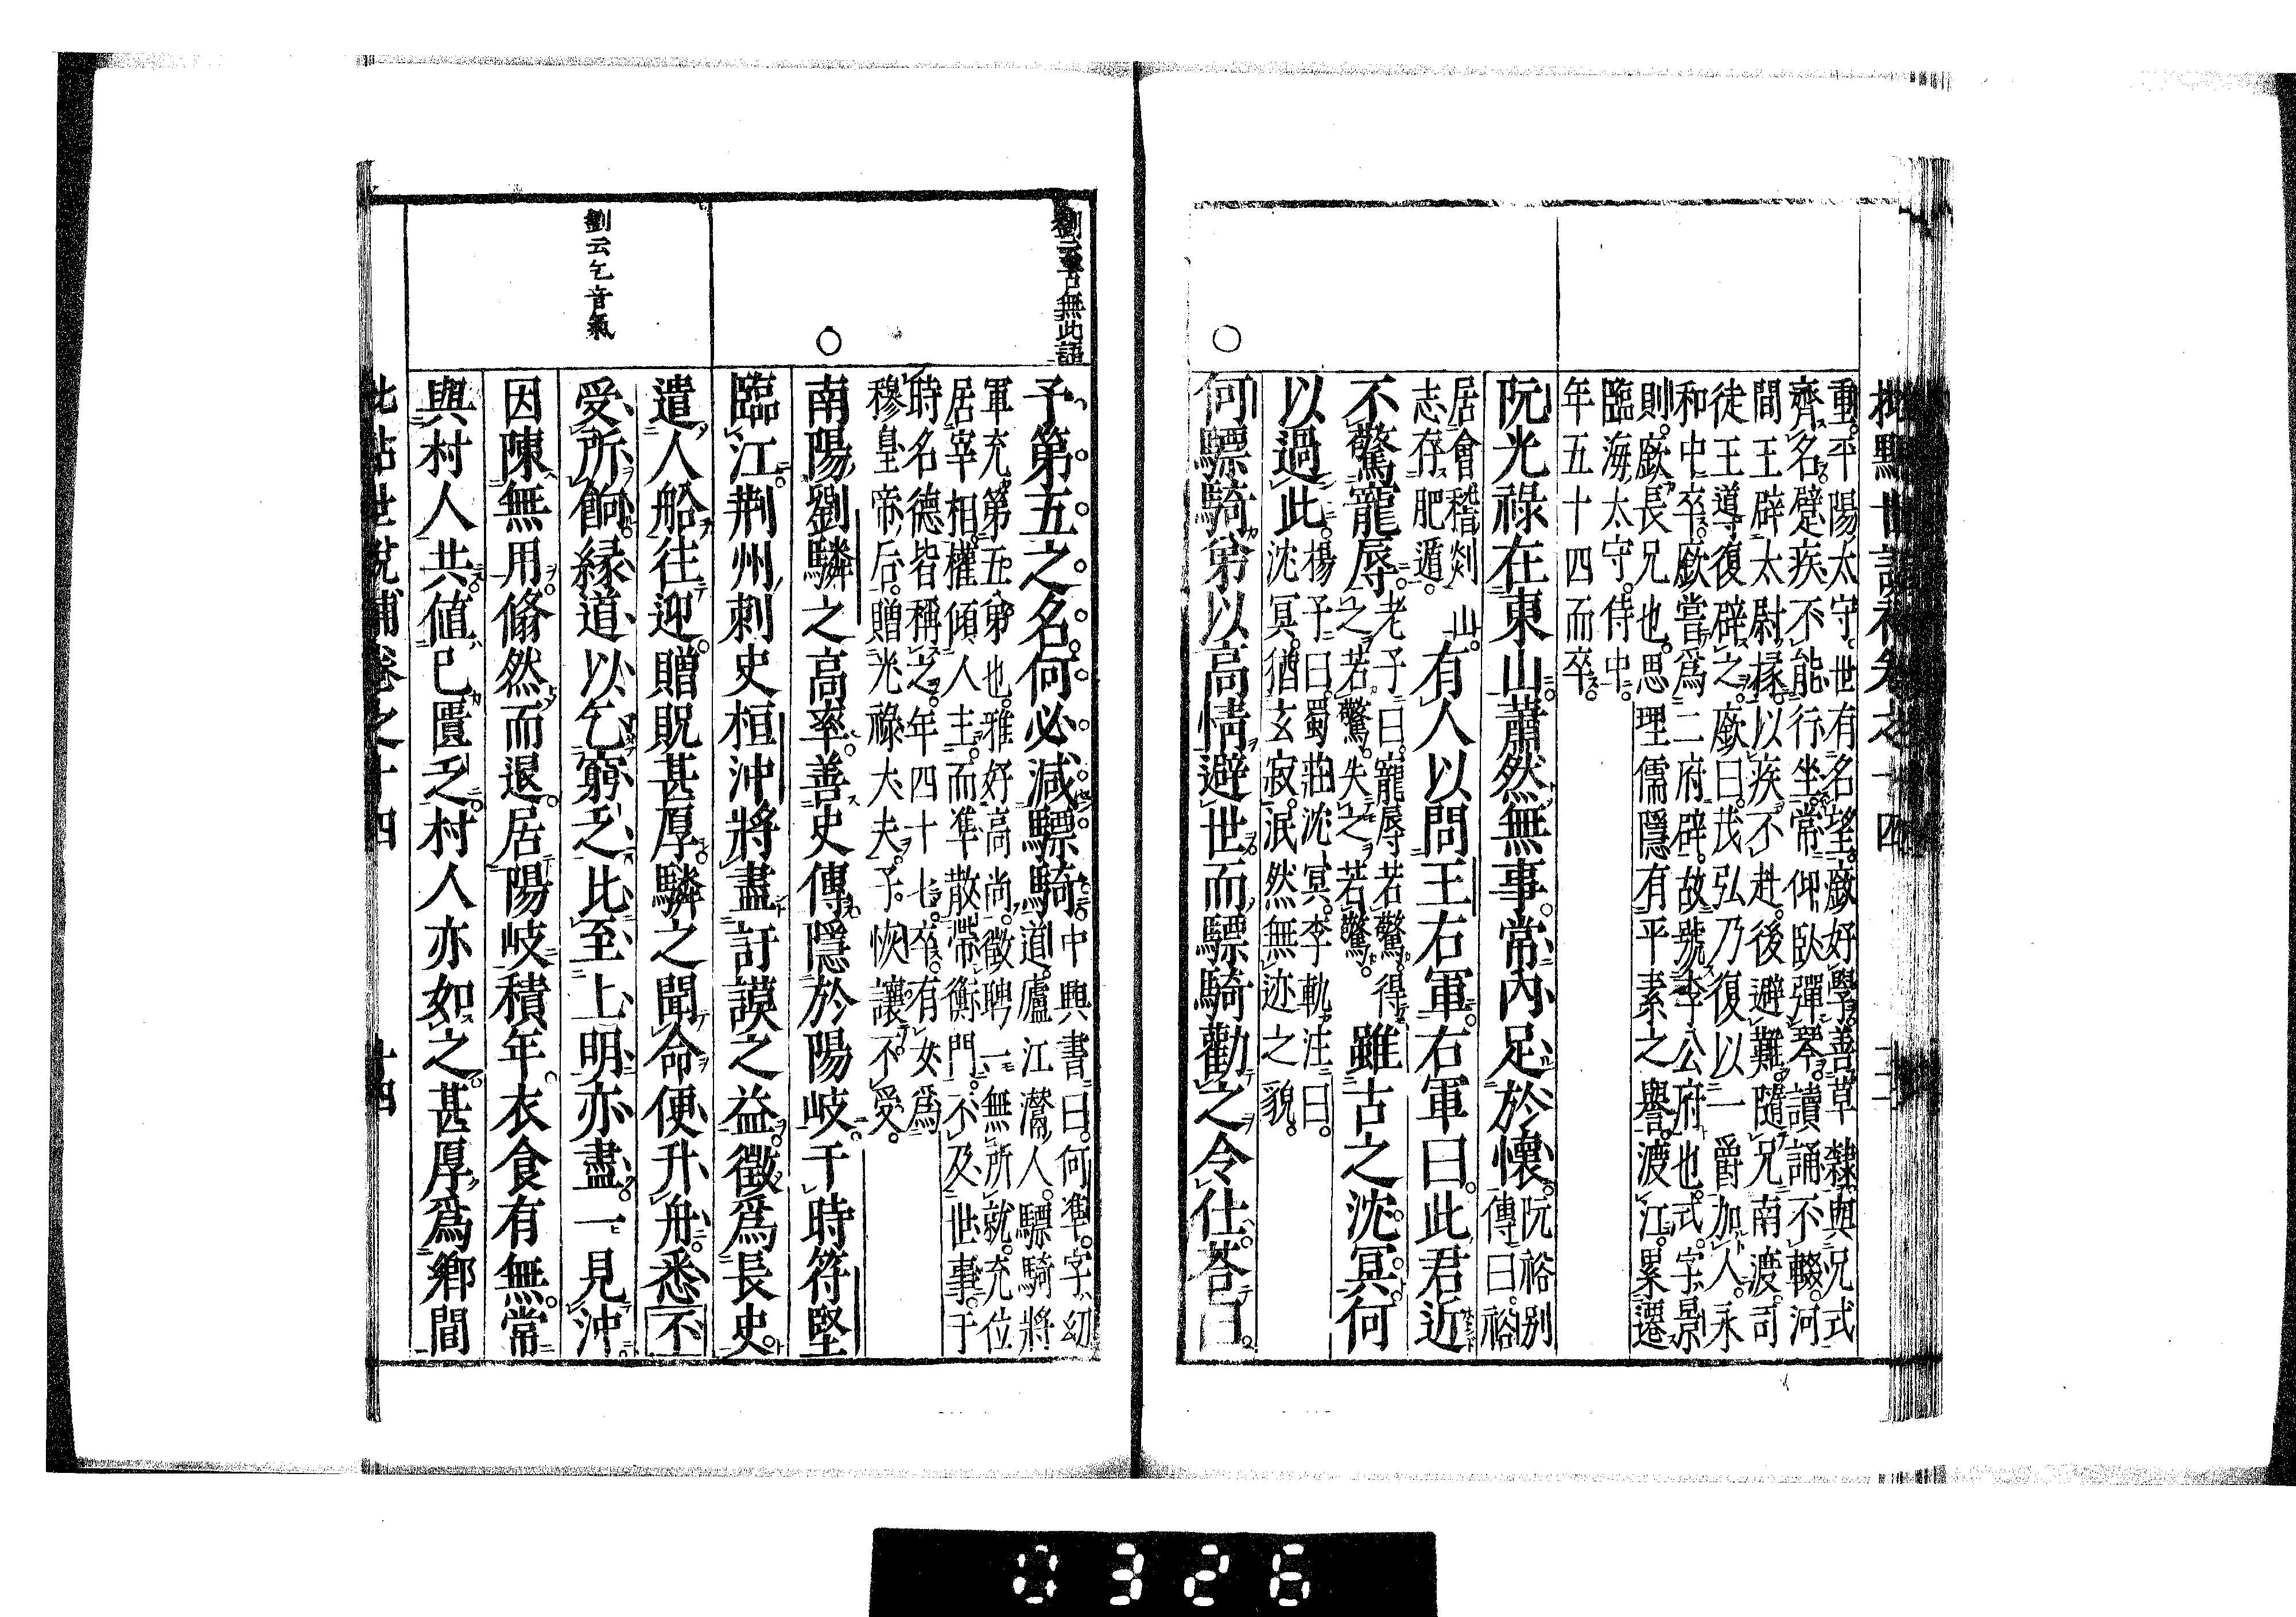 重平陽太守世有名望廞好學善草隸與兄式
齊名躄疾不能行坐常仰臥彈琴讀誦不輟河
間王辟太尉掾以疾不赴後避難隨兄南渡司
徒王導復辟之廞曰茂弘乃復以一爵加人永
和中卒廞嘗爲二府辟故號李公府也式字景
則廞長兄也思理儒隱有平素之譽渡江累遷
臨海太守侍中
年五十四而卒
阮光祿在東山蕭然無事常內足於懷
阮裕別
傳曰裕
居會稽剡山
志存肥遁
有人以問王右軍右軍曰此君近
不驚寵辱
老子曰寵辱若驚得
之若驚失之若驚
雖古之沈冥何
以過此
楊子曰蜀莊沈冥李軌注曰
沈冥猶玄寂泯然無迹之貌
何驃騎弟以高情避世而驃騎勸之令仕荅曰
劉云學古無此語
予第五之名何必減驃騎
中興書曰何準字幼
道廬江灊人驃騎將
軍充第五弟也雅好高尚徵聘一無所就充位
居宰相權傾人主而準散滯衡門不及世事于
時名德皆稱之年四十七卒有女爲
穆皇帝后贈光祿大夫子恢讓不受
南陽劉驎之高率善史傳隱於陽岐于時符堅
臨江荆州刺史桓沖將盡訏謨之益徵爲長史
遣人船往迎贈貺甚厚驎之聞命便升舟悉不
劉云乞音氣
受所餉緣道以乞窮乏比至上明亦盡一見沖
因陳無用翛然而退居陽岐積年衣食有無常
與村人共值己匱乏村人亦如之甚厚爲鄉閭
0326